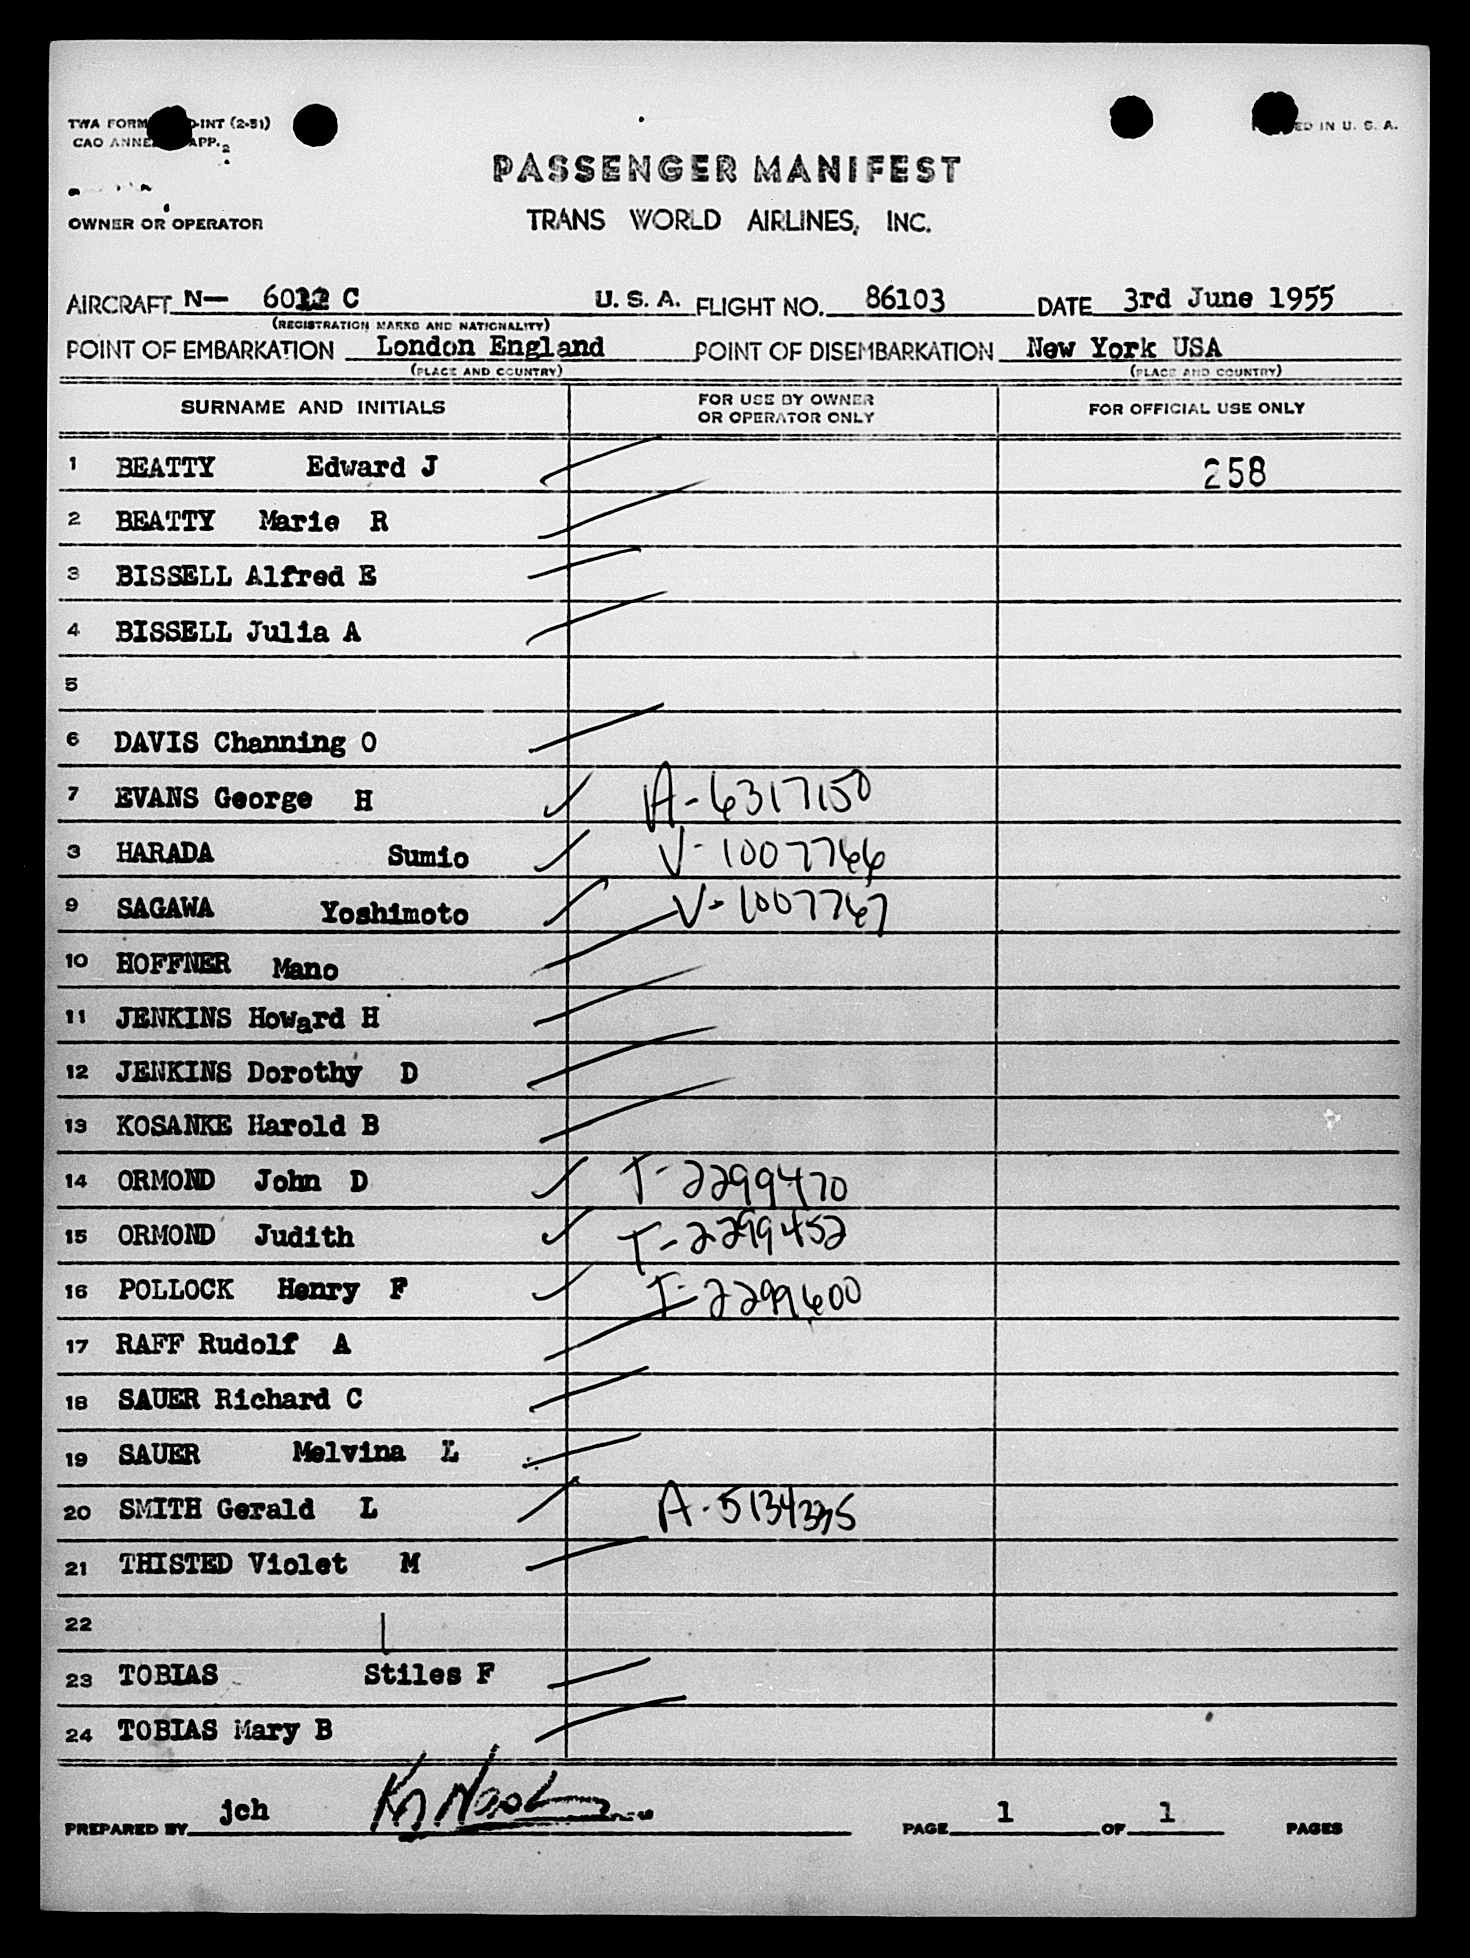 TWA FORM INT (2-51)
CAO ANNE APP. 2
PRINTED IN U. S. A.
PASSENGER MANIFEST
TRANS WORLD AIRLINES, INC.
OWNER OR OPERATOR
AIRCRAFT N— 6012 C U. S. A. FLIGHT NO. 86103 DATE 3rd June 1955
(REGISTRATION MARKS AND NATIONALITY)
POINT OF EMBARKATION London England POINT OF DISEMBARKATION New York USA
(PLACE AND COUNTRY) (PLACE AND COUNTRY)
SURNAME AND INITIALS FOR USE BY OWNER OR OPERATOR ONLY FOR OFFICIAL USE ONLY
1 BEATTY Edward J 258
2 BEATTY Marie R
3 BISSELL Alfred E
4 BISSELL Julia A
5
6 DAVIS Channing O
7 EVANS George H A-6317150
8 HARADA Sumio V-1007766
9 SAGAWA Yoshimoto V-1007767
10 HOFFNER Mano
11 JENKINS Howard H
12 JENKINS Dorothy D
13 KOSANKE Harold B
14 ORMOND John D T-2299470
15 ORMOND Judith T-2299452
16 POLLOCK Henry F T-2299600
17 RAFF Rudolf A
18 SAUER Richard C
19 SAUER Melvina L
20 SMITH Gerald L A-5134335
21 THISTED Violet M
22
23 TOBIAS Stiles F
24 TOBIAS Mary B
PREPARED BY jch PAGE 1 OF 1 PAGES